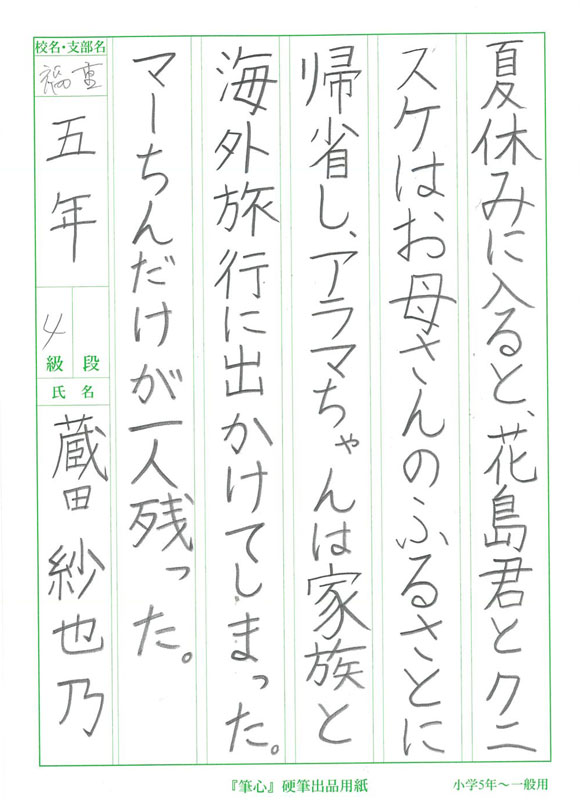 夏休みに入ると、花島君とクニ
スケはお母さんのふるさとに
帰省し、アラマちゃんは家族と
海外旅行に出かけてしまった。
マーちんだけが一人残った。
校名・支部名
福重
五年
4
級 段
氏名
蔵田紗也乃
『筆心』硬筆出品用紙
小学5年～一般用